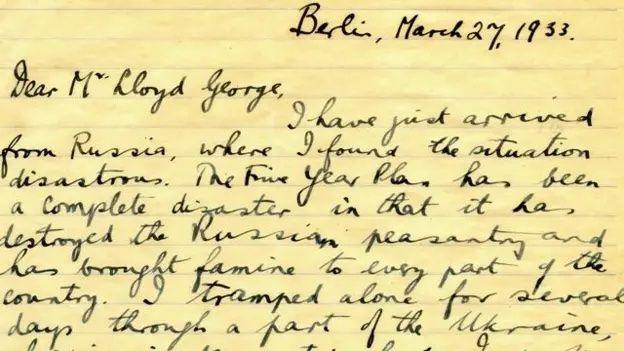 Berlin, March 27, 1933.
Dear Mr Lloyd George,
I have just arrived
from Russia, where I found the situation
disastrous. The Five Year Plan has been
a complete disaster in that it has
destroyed the Russian peasantry and
has brought famine to every part of the
country. I tramped alone for several
days through a part of the Ukraine,